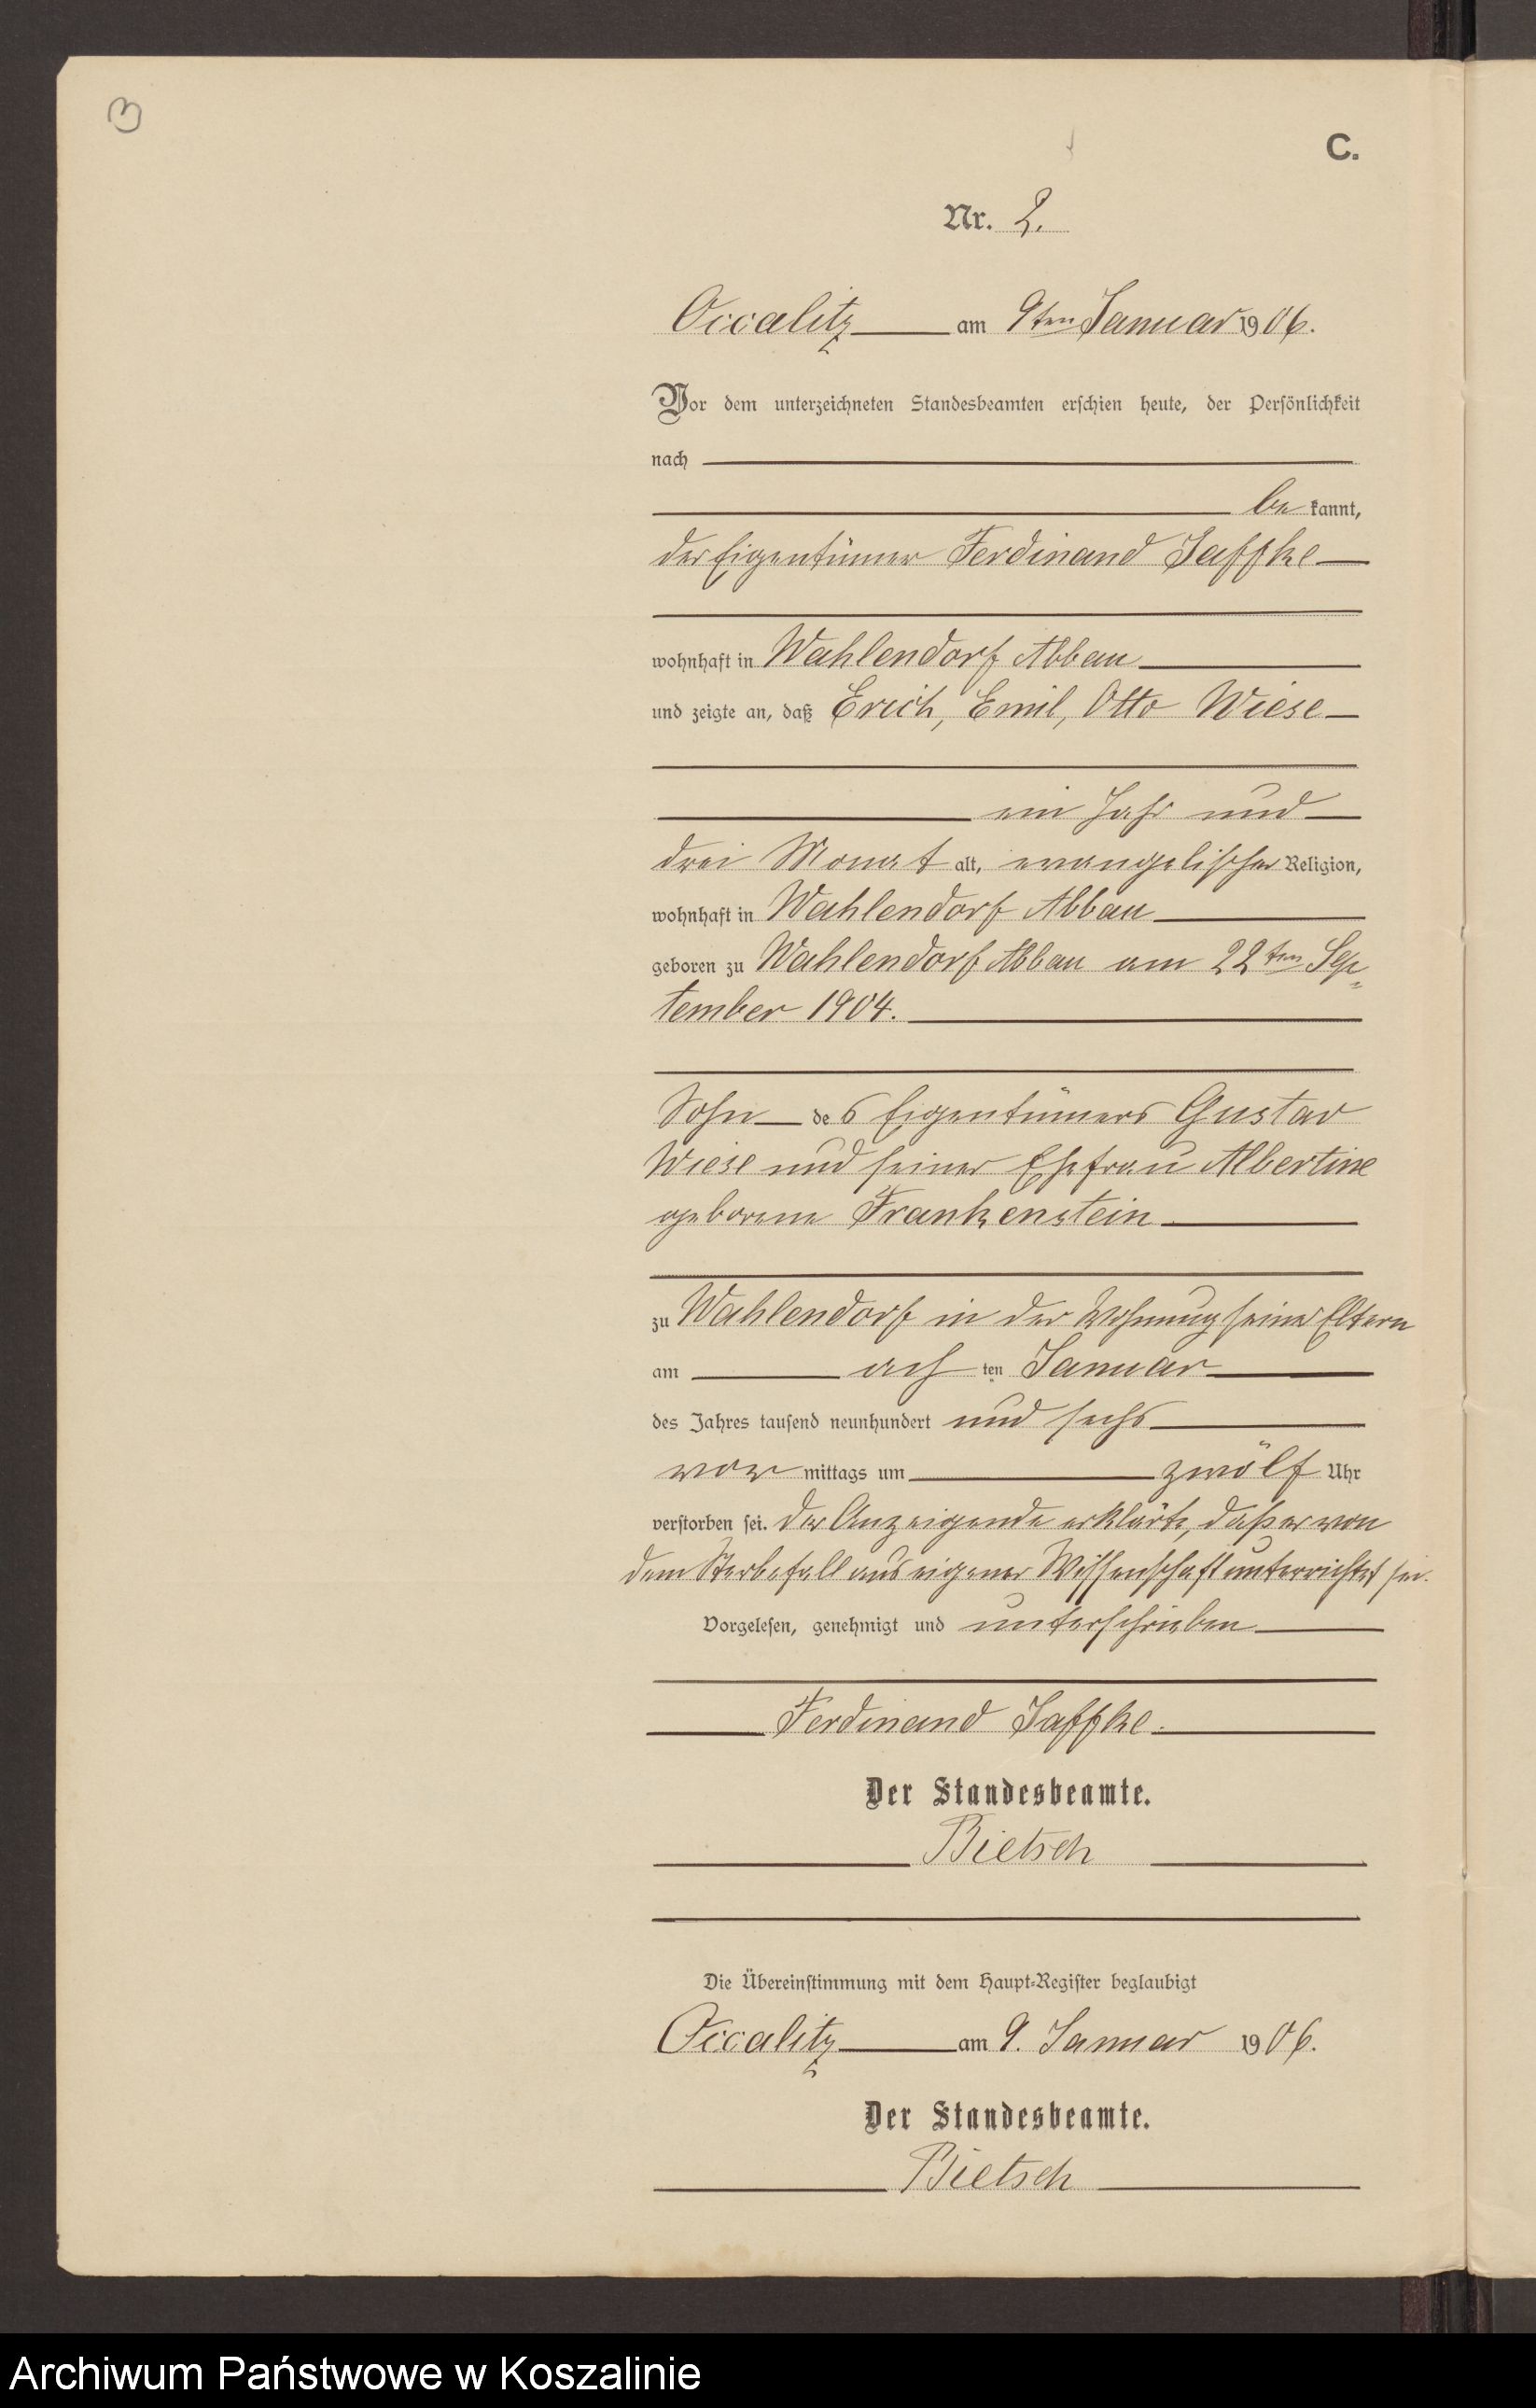 3
C.
Nr. 2.
Occalitz am 9ten Januar 1906.
Vor dem unterzeichneten Standesbeamten erschien heute, der Persönlichkeit
nach
be kannt,
der Eigentümer Ferdinand Jaffke
wohnhaft in Wahlendorf Abbau
und zeigte an, daß Erich, Emil, Otto Wiese
ein Jahr und
drei Monat alt, evangelischer Religion,
wohnhaft in Wahlendorf Abbau
geboren zu Wahlendorf Abbau am 22ten Sep
tember 1904.
Sohn des Eigentümers Gustav
Wiese und seiner Ehefrau Albertine
geborene Frankenstein
zu Wahlendorf in der Wohnung seiner Eltern
am ach ten Januar
des Jahres tausend neunhundert und sechs
vor mittags um zwölf Uhr
verstorben sei. Der Anzeigende erklärte, daß er von
dem Sterbefall aus eigener Wissenschaft unterrichtet sei.
Vorgelesen, genehmigt und unterschrieben
Ferdinand Jaffke.
Der Standesbeamte.
Bietsch
Die Übereinstimmung mit dem Haupt-Register beglaubigt
Occalitz am 9. Januar 1906.
Der Standesbeamte.
Bietsch
Archiwum Państwowe w Koszalinie